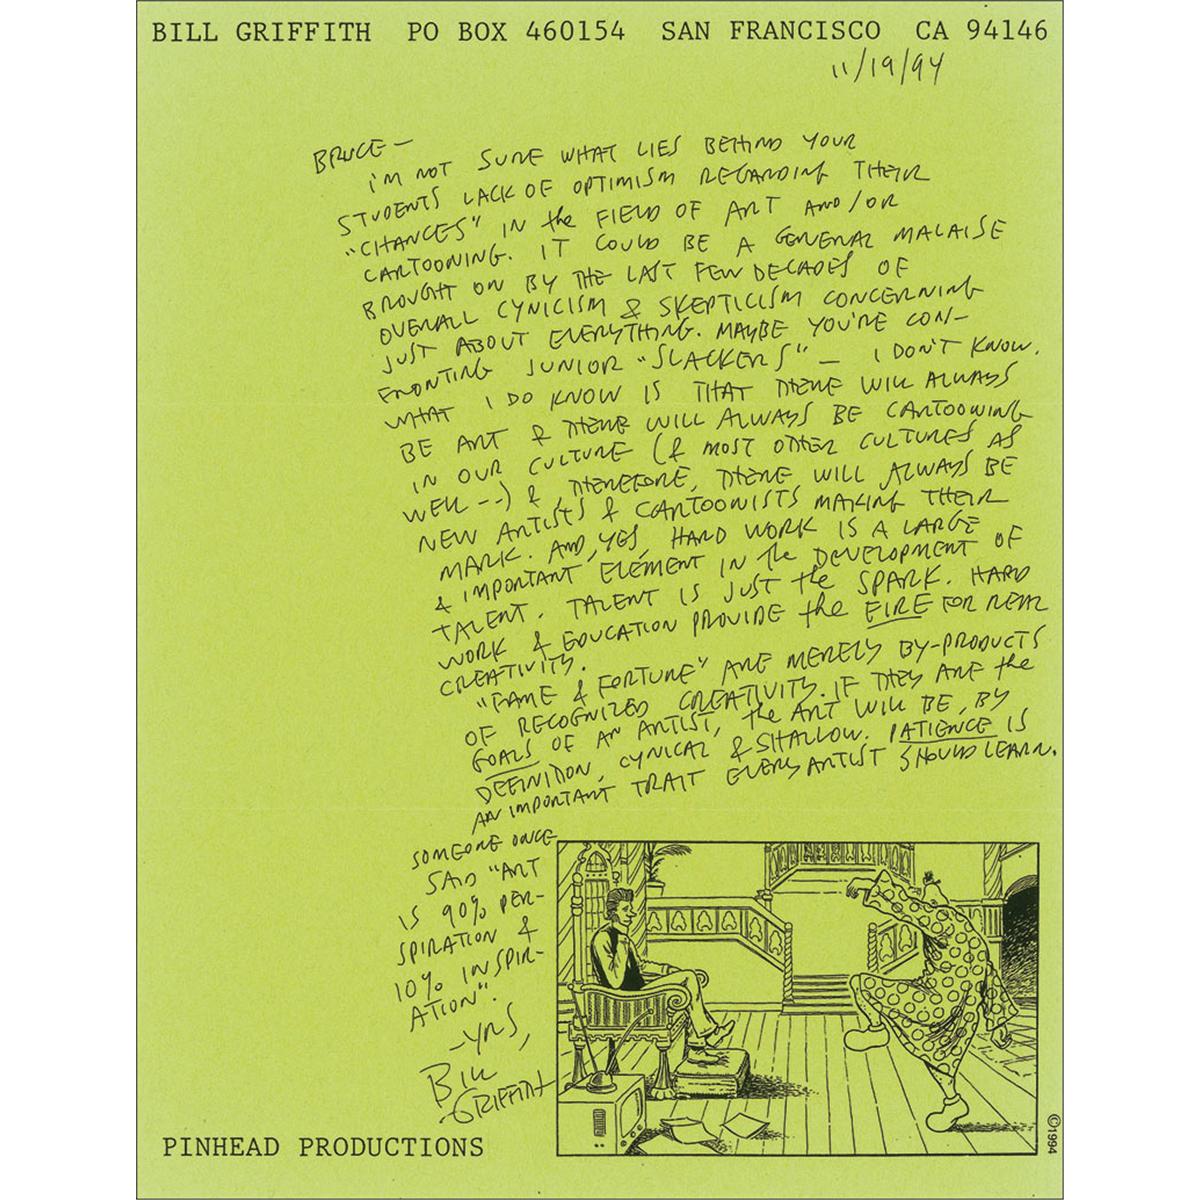 BILL GRIFFITH PO BOX 460154 SAN FRANCISCO CA 94146
11/19/94
BRUCE —
I'M NOT SURE WHAT LIES BEHIND YOUR
STUDENTS LACK OF OPTIMISM REGARDING THEIR
"CHANCES" IN the FIELD OF ART AND/OR
CARTOONING. IT COULD BE A GENERAL MALAISE
BROUGHT ON BY THE LAST FEW DECADES OF
OVERALL CYNICISM & SKEPTICISM CONCERNING
JUST ABOUT EVERYTHING. MAYBE YOU'RE CON-
FRONTING JUNIOR "SLACKERS" — I DON'T KNOW.
WHAT I DO KNOW IS THAT THERE WILL ALWAYS
BE ART & THERE WILL ALWAYS BE CARTOONING
IN OUR CULTURE (& MOST OTHER CULTURES AS
WELL --) & THEREFORE, THERE WILL ALWAYS BE
NEW ARTISTS & CARTOONISTS MAKING THEIR
MARK. AND, YES, HARD WORK IS A LARGE
& IMPORTANT ELEMENT IN the DEVELOPMENT OF
TALENT. TALENT IS JUST the SPARK. HARD
WORK & EDUCATION PROVIDE the FIRE FOR REAL
CREATIVITY.
"FAME & FORTUNE" ARE MERELY BY-PRODUCTS
OF RECOGNIZED CREATIVITY. IF THEY ARE the
GOALS OF AN ARTIST, the ART WILL BE, BY
DEFINITION, CYNICAL & SHALLOW. PATIENCE IS
AN IMPORTANT TRAIT EVERY ARTIST SHOULD LEARN.
SOMEONE ONCE
SAID "ART
IS 90% PER-
SPIRATION &
10% INSPIR-
ATION".
—YRS,
BILL
GRIFFITH
©1994
PINHEAD PRODUCTIONS